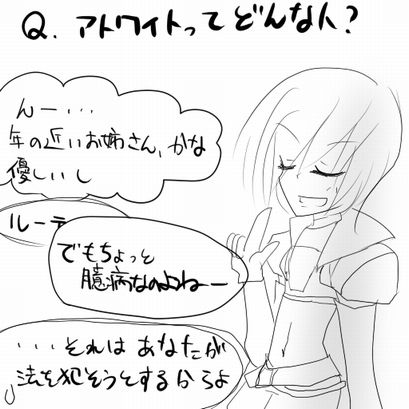 Q. アトワイトってどんな人?
んー・・・
年の近いお姉さん、かな
優しいし
ルーテ
でもちょっと
臆病なのよねー
・・・それは あなたが
法を犯そうとするからよ